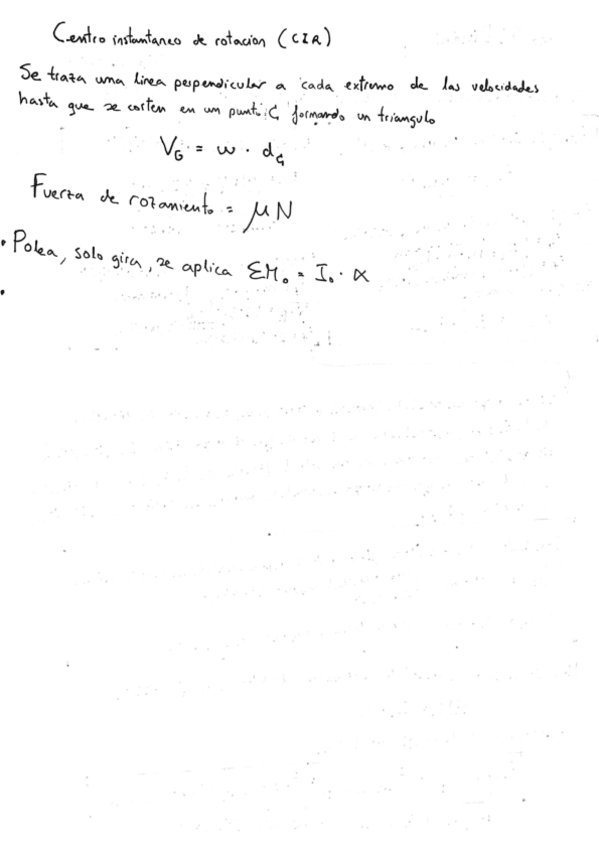 Centro instantaneo de rotacion (CIR)
Se traza una linea perpendicular a cada extremo de las velocidades
hasta que se corten en un punto C formando un triangulo
V_G = w · d_G
Fuerza de rozamiento = μN
• Polea, solo gira, se aplica ΣM_o = I_o · α
•